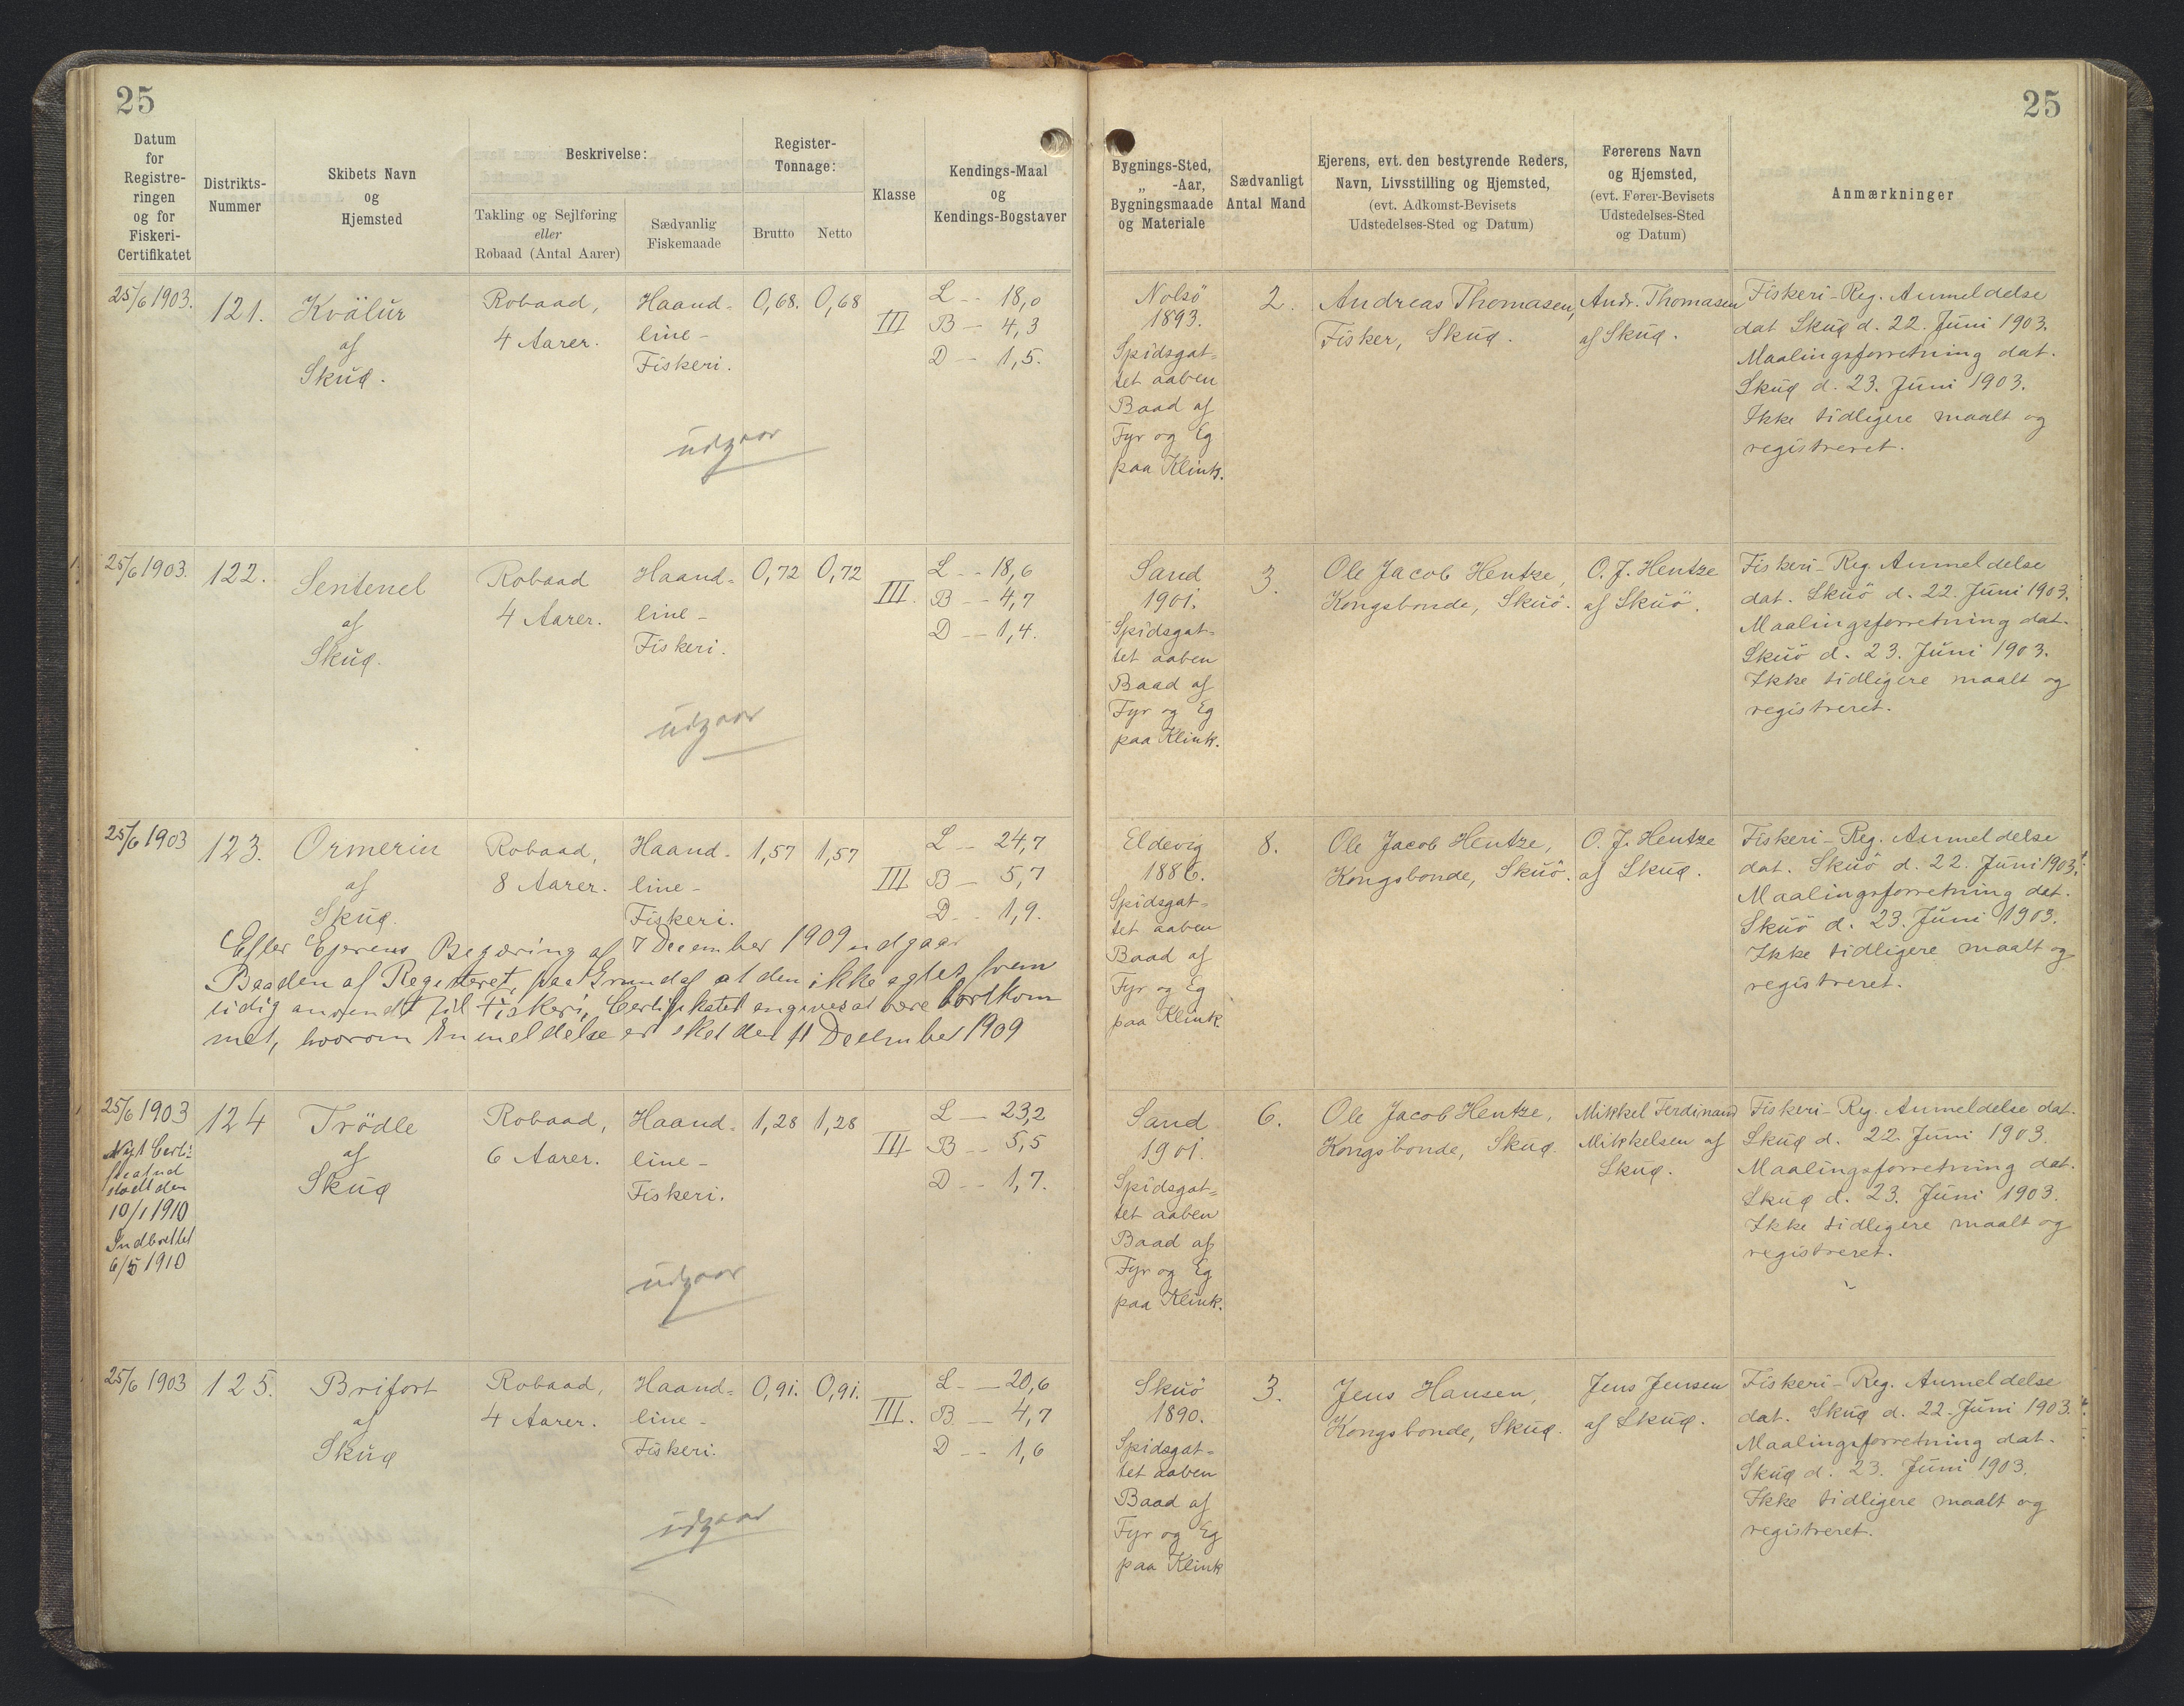 25
25
Datum
for
Registre-
ringen
og for
Fiskeri-
Certifikatet
Distrikts-
Nummer
Skibets Navn
og
Hjemsted
Beskrivelse:
Takling og Sejlføring
eller
Robaad (Antal Aarer)
Sædvanlig
Fiskemaade
Register-
Tonnage:
Brutto
Netto
Klasse
Kendings-Maal
og
Kendings-Bogstaver
Bygnings-Sted,
„ -Aar,
Bygningsmaade
og Materiale
Sædvanligt
Antal Mand
Ejerens, evt. den bestyrende Reders,
Navn, Livsstilling og Hjemsted,
(evt. Adkomst-Bevisets
Udstedelses-Sted og Datum)
Førerens Navn
og Hjemsted,
(evt. Fører-Bevisets
Udstedelses-Sted
og Datum)
Anmærkninger
25/6 1903.
121.
Kvälur
af
Skuø.
Robaad,
4 Aarer.
Haand-
line-
Fiskeri.
0,68.
0,68
III
L -- 18,0
B -- 4,3
D -- 1,5.
udgaar
Nolsö
1893.
Spidsgat=
tet aaben
Baad af
Fyr og Eg
paa Klink.
2.
Andreas Thomasen,
Fisker, Skuø.
Andr. Thomasen
af Skuø.
Fiskeri-Reg. Anmeldelse
dat Skuø d. 22. Juni 1903.
Maalingsforretning dat.
Skuø d. 23. Juni 1903.
Ikke tidligere maalt og
registreret.
25/6 1903.
122.
Sentenel
af
Skuø.
Robaad
4 Aarer.
Haand=
line-
Fiskeri.
0,72
0,72
III.
L -- 18,6
B -- 4,7
D -- 1,4.
udgaar
Sand
1901.
Spidsgat=
tet aaben
Baad af
Fyr og Eg
paa Klink.
3.
Ole Jacob Hentze,
Kongsbonde, Skuö.
O. J. Hentze
af Skuö.
Fiskeri-Reg. Anmeldelse
dat. Skuö d. 22. Juni 1903.
Maalingsforretning dat.
Skuö d. 23. Juni 1903.
Ikke tidligere maalt og
registreret.
25/6 1903
123.
Ormerin
af
Skuø.
Robaad,
8 Aarer.
Haand-
line-
Fiskeri.
1,57
1,57
III
L -- 24,7
B -- 5,7
D -- 1,9.
Efter Ejerens Begæring af 7 December 1909 udgaar
Baaden af Registeret, paa Grund af at den ikke agtes frem
tidig anvendt til Fiskeri, Certifikatet angives at være bortkom
met, hvorom Anmeldelse er sket den 11 December 1909
Eldevig
1886.
Spidsgat=
tet aaben
Baad af
Fyr og Eg
paa Klink
8.
Ole Jacob Hentze,
Kongsbonde, Skuö.
O. J. Hentze
af Skuø.
Fiskeri-Reg. Anmeldelse
dat. Skuö d. 22. Juni 1903.
Maalingsforretning dat.
Skuö d. 23. Juni 1903.
Ikke tidligere maalt og
registreret.
25/6 1903
Nyt Certi-
ficat ud
stedt den
10/1 1910
Indbrettet
6/5 1910
124
Trödle
af
Skuø
Robaad,
6 Aarer.
Haand=
line-
Fiskeri.
1,28
1,28
III
L -- 23,2
B -- 5,5
D -- 1,7.
udgaar
Sand
1901.
Spidsgat=
tet aaben
Baad af
Fyr og Eg
paa Klink.
6.
Ole Jacob Hentze,
Kongsbonde, Skuø.
Mikkel Ferdinand
Mikkelsen af
Skuø.
Fiskeri-Reg. Anmeldelse dat.
Skuø d. 22. Juni 1903.
Maalingsforretning dat.
Skuø d. 23. Juni 1903.
Ikke tidligere maalt og
registreret.
25/6 1903
125.
Brifort
af
Skuø
Robaad,
4 Aarer.
Haand=
line-
Fiskeri.
0,91.
0,91.
III.
L -- 20,6
B -- 4,7
D -- 1,6
udgaar
Skuö
1890.
Spidsgat=
tet aaben
Baad af
Fyr og Eg
paa Klink
3.
Jens Hansen,
Kongsbonde, Skuø.
Jens Jensen
af Skuø.
Fiskeri-Reg. Anmeldelse
dat. Skuø d. 22. Juni 1903.
Maalingsforretning dat.
Skuø d. 23. Juni 1903.
Ikke tidligere maalt og
registreret.